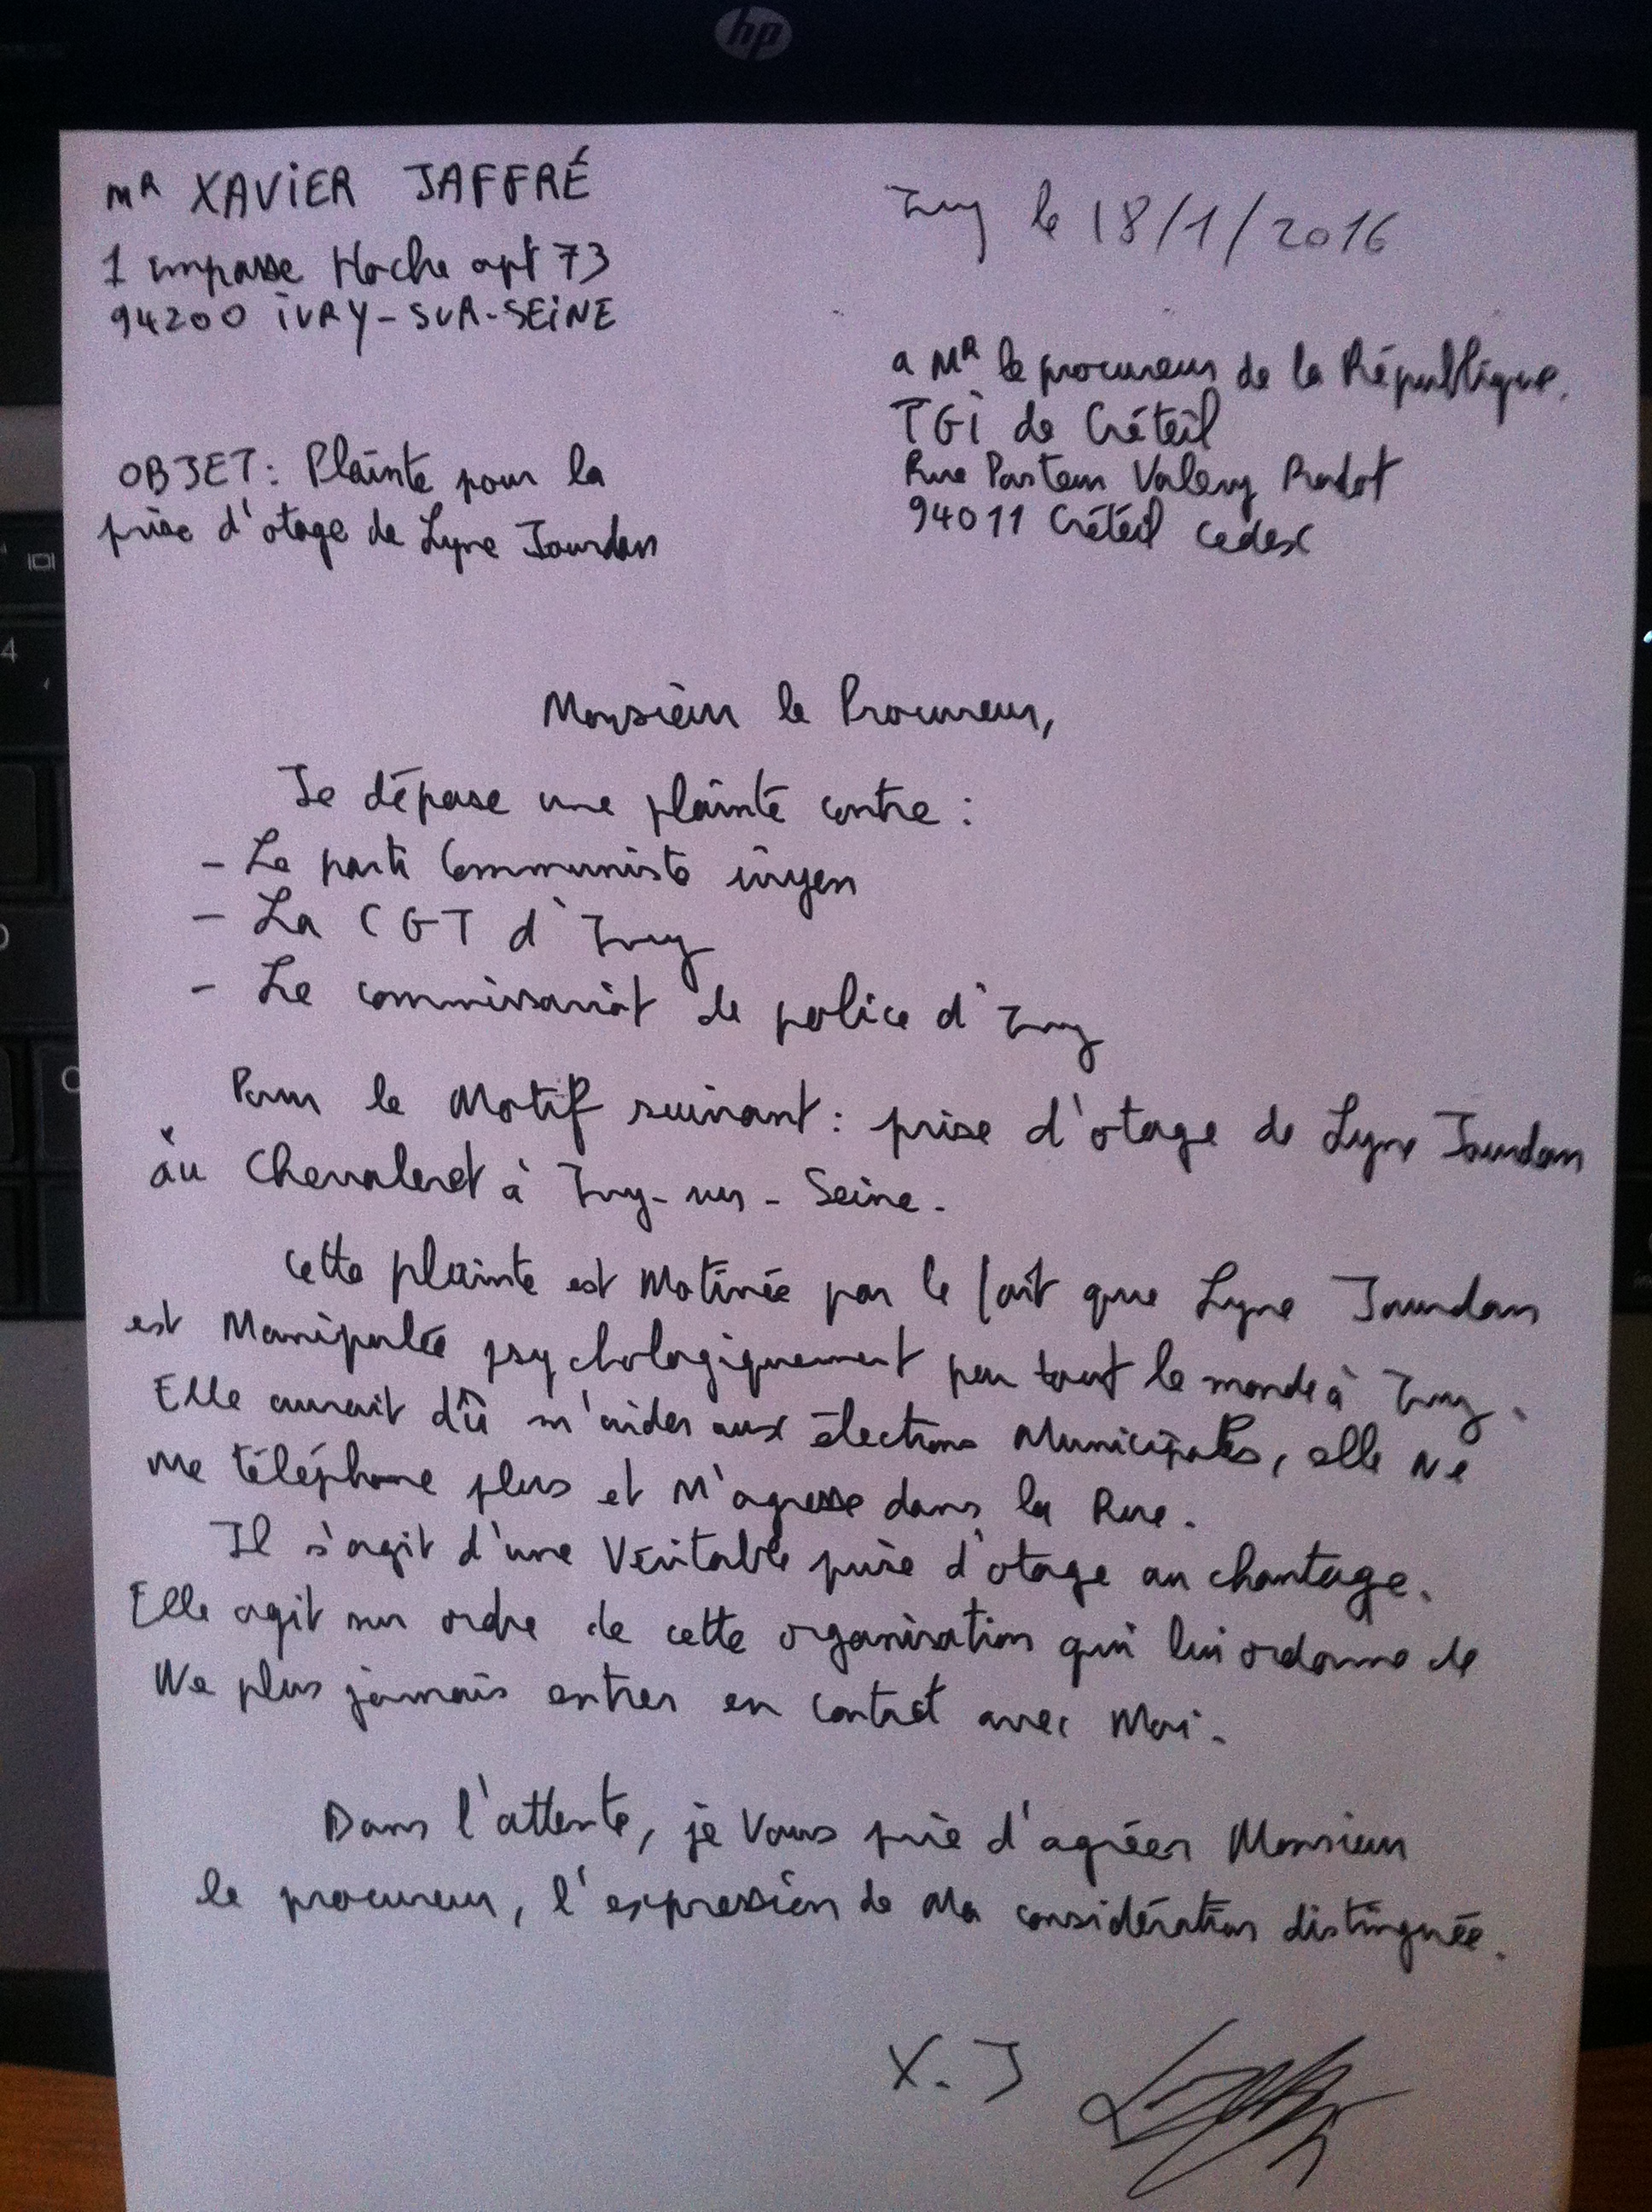 hp
MR XAVIER JAFFRÉ
1 impasse Hoche apt 73
94200 IVRY-SUR-SEINE
Ivry le 18/1/2016
a MR le procureur de la République.
TGI de Créteil
Rue Pasteur Valery Radot
94011 Créteil cedex
OBJET: Plainte pour la
prise d'otage de Lyne Jourdan
Monsieur le Procureur,
Je dépose une plainte contre :
- Le parti Communiste ivryen
- La CGT d'Ivry
- Le commissariat de police d'Ivry
Pour le Motif suivant : prise d'otage de Lyne Jourdan
au Chevaleret à Ivry-sur-Seine.
Cette plainte est Motivée par le fait que Lyne Jourdan
est Manipulée psychologiquement par tout le monde à Ivry.
Elle aurait dû m'aider aux élections Municipales, elle Ne
me téléphone plus et M'agresse dans la Rue.
Il s'agit d'une Véritable prise d'otage au chantage.
Elle agit sur ordre de cette organisation qui lui ordonne de
Ne plus jamais entrer en contact avec Moi.
Dans l'attente, je Vous prie d'agréer Monsieur
le procureur, l'expression de Ma considération distinguée.
X.J